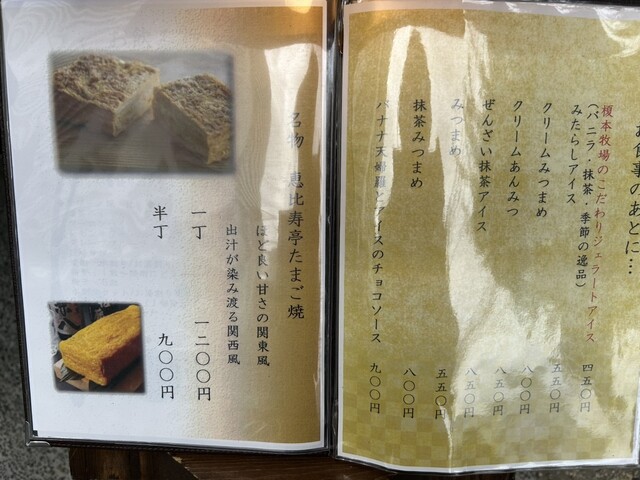 お食事のあとに…
榎本牧場のこだわりジェラートアイス
(バニラ・抹茶・季節の逸品) 四五〇円
みたらしアイス 五五〇円
クリームみつまめ 八〇〇円
クリームあんみつ 八五〇円
ぜんざい抹茶アイス 八五〇円
みつまめ 五五〇円
抹茶みつまめ 八〇〇円
バナナ天婦羅とアイスのチョコソース 九〇〇円
名物 恵比寿亭たまご焼
ほど良い甘さの関東風
出汁が染み渡る関西風
一丁 一二〇〇円
半丁 九〇〇円